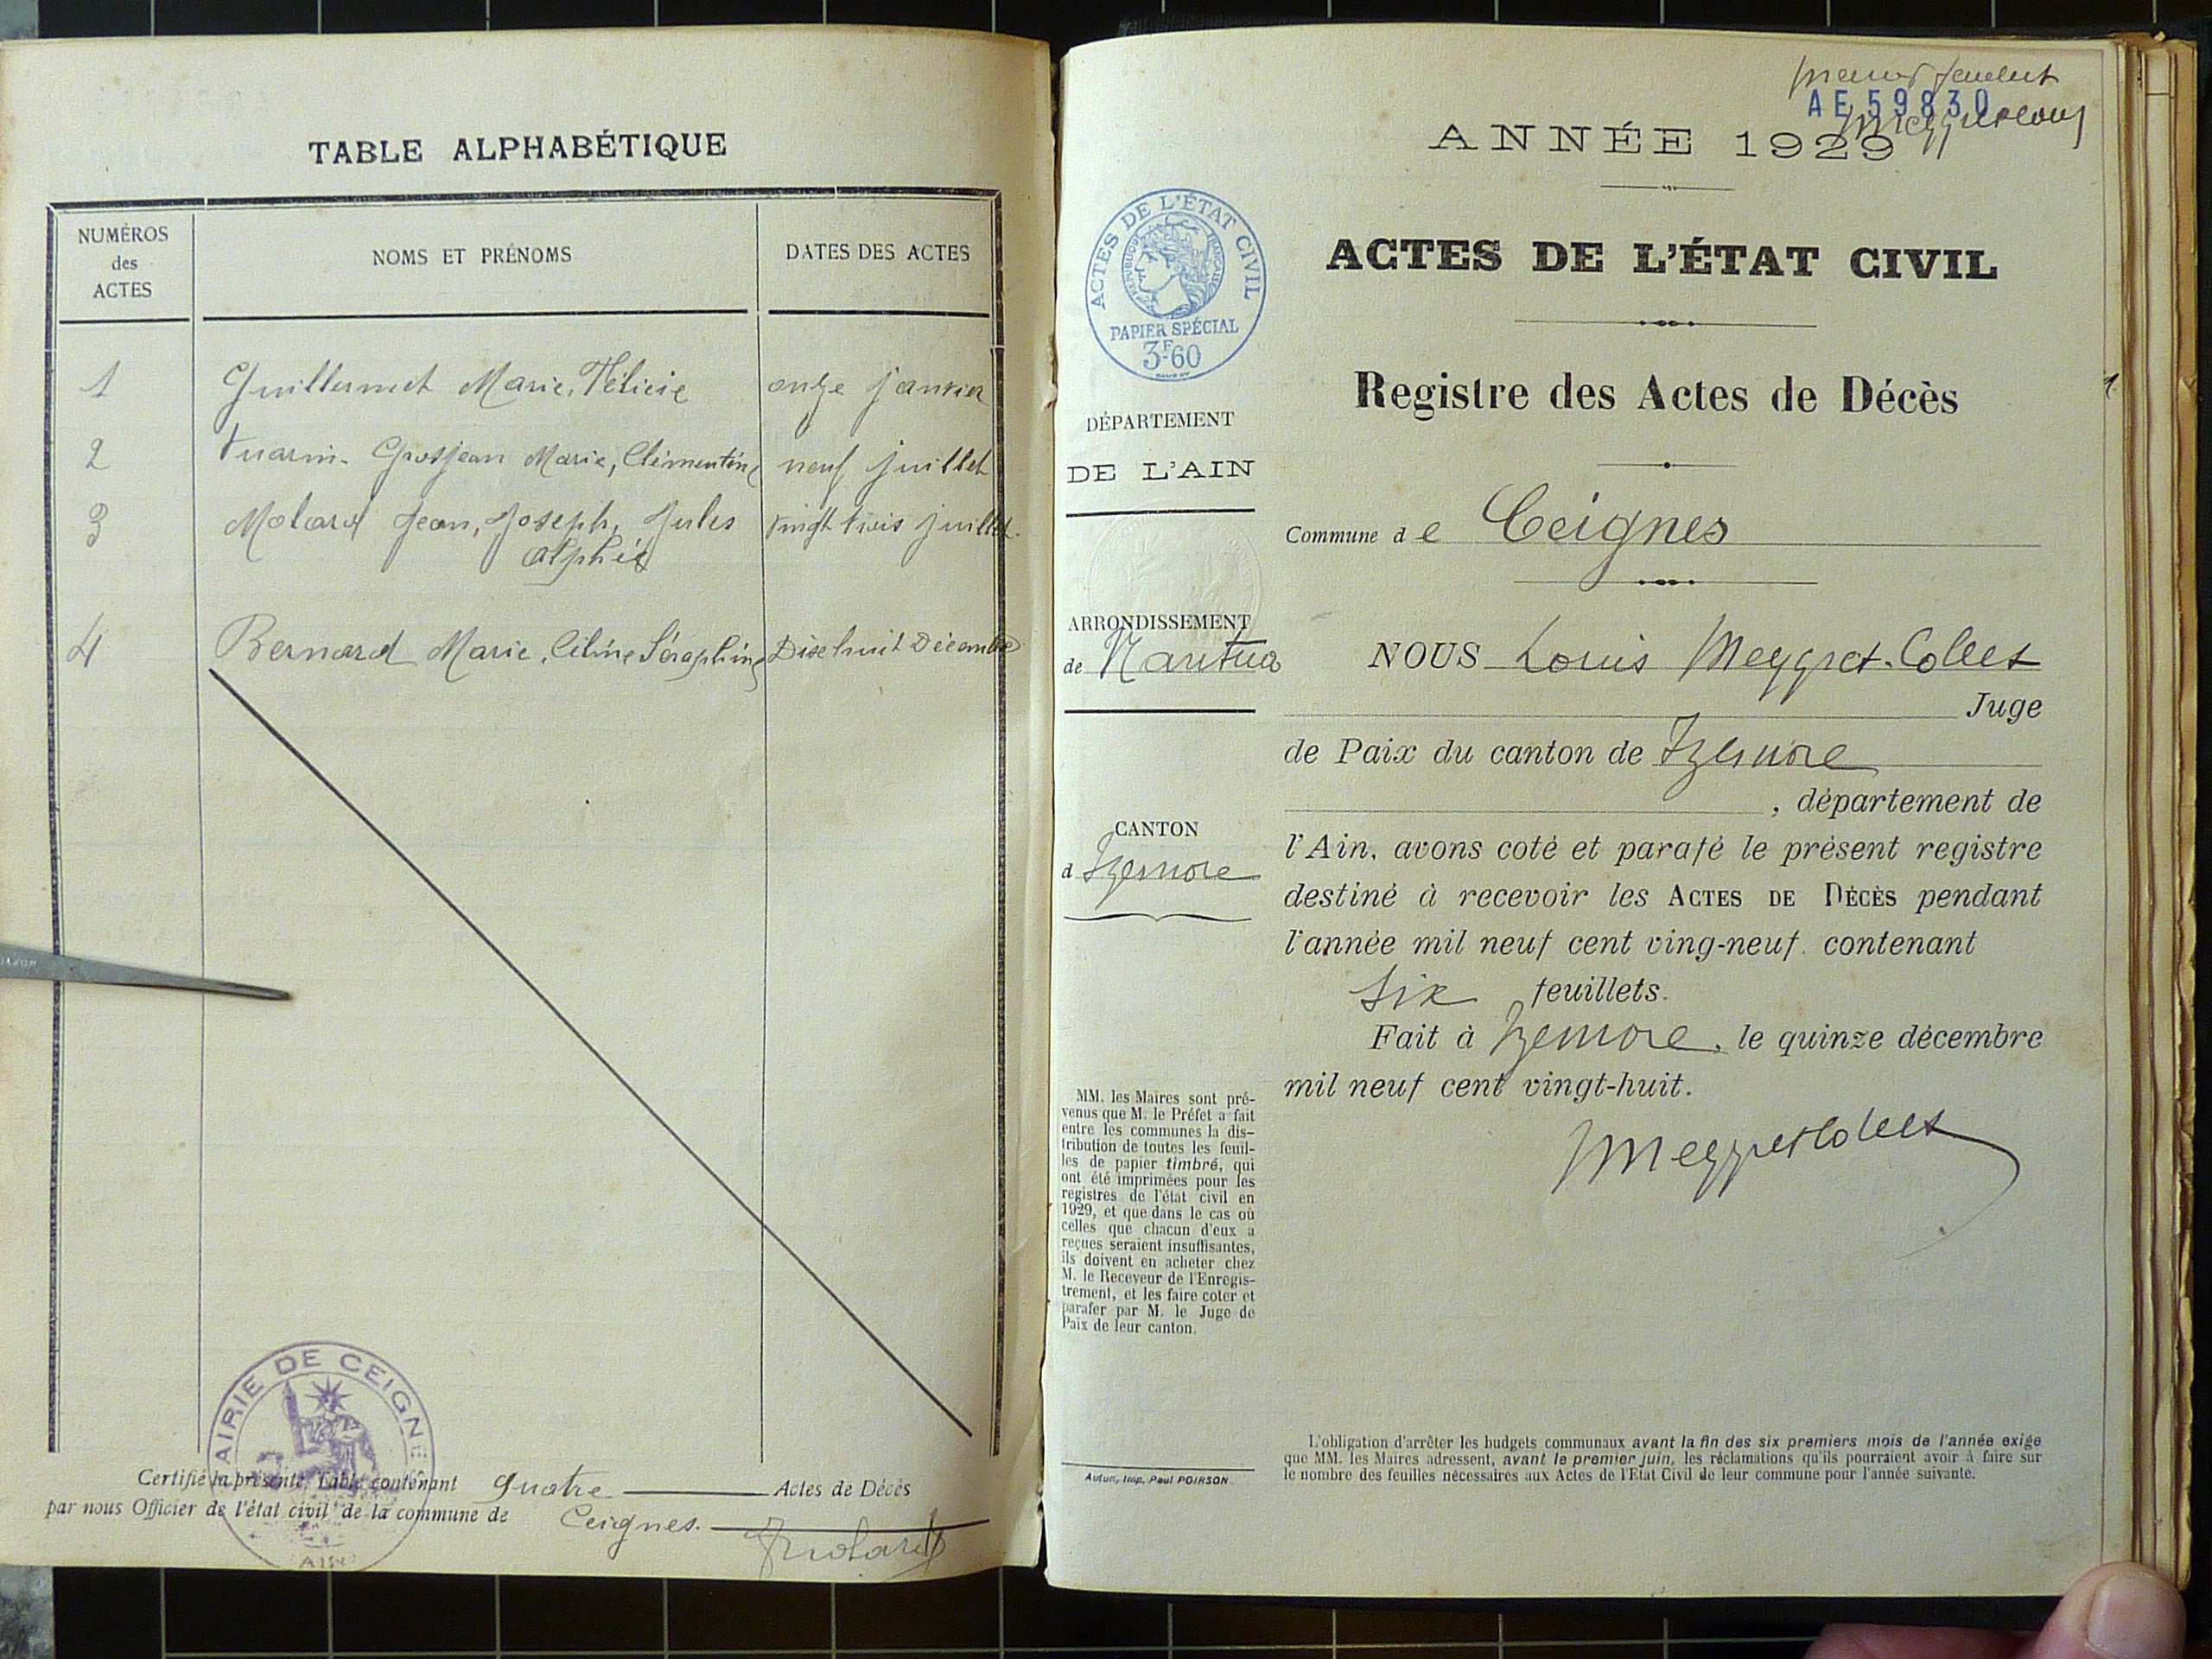 TABLE ALPHABÉTIQUE
NUMÉROS
des
ACTES
NOMS ET PRÉNOMS
DATES DES ACTES
1 Guillermet Marie, Félicie onze janvier
2 Tuarin-Grosjean Marie, Clémentine neuf juillet
3 Molard Jean, Joseph, Jules vingt trois juillet
Alphée
4 Bernard Marie, Céline Séraphine Dix huit Décembre
MAIRIE DE CEIGNES
Certifié la présente Table contenant quatre Actes de Décès
par nous Officier de l'état civil de la commune de Ceignes.
Molard
AIN
premier feuillet
AE 59830
ANNÉE 1929
ACTES DE L'ÉTAT CIVIL
RÉPUBLIQUE FRANÇAISE
PAPIER SPÉCIAL
3F.60
ACTES DE L'ÉTAT CIVIL
Registre des Actes de Décès
DÉPARTEMENT
DE L'AIN
Commune de Ceignes
ARRONDISSEMENT
de Nantua
CANTON
d Izernore
NOUS Louis Meygret-Collet
Juge
de Paix du canton de Izernore
, département de
l'Ain, avons coté et parafé le présent registre
destiné à recevoir les ACTES DE DÉCÈS pendant
l'année mil neuf cent ving-neuf. contenant
six feuillets.
Fait à Izernore, le quinze décembre
mil neuf cent vingt-huit.
Meygret Collet
MM. les Maires sont pré-
venus que M. le Préfet a fait
entre les communes la dis-
tribution de toutes les feuil-
les de papier timbré, qui
ont été imprimées pour les
registres de l'état civil en
1929, et que dans le cas où
celles que chacun d'eux a
reçues seraient insuffisantes,
ils doivent en acheter chez
M. le Receveur de l'Enregis-
trement, et les faire coter et
parafer par M. le Juge de
Paix de leur canton.
Autun, Imp. Paul POIRSON
L'obligation d'arrêter les budgets communaux avant la fin des six premiers mois de l'année exige
que MM. les Maires adressent, avant le premier juin, les réclamations qu'ils pourraient avoir à faire sur
le nombre des feuilles nécessaires aux Actes de l'Etat Civil de leur commune pour l'année suivante.